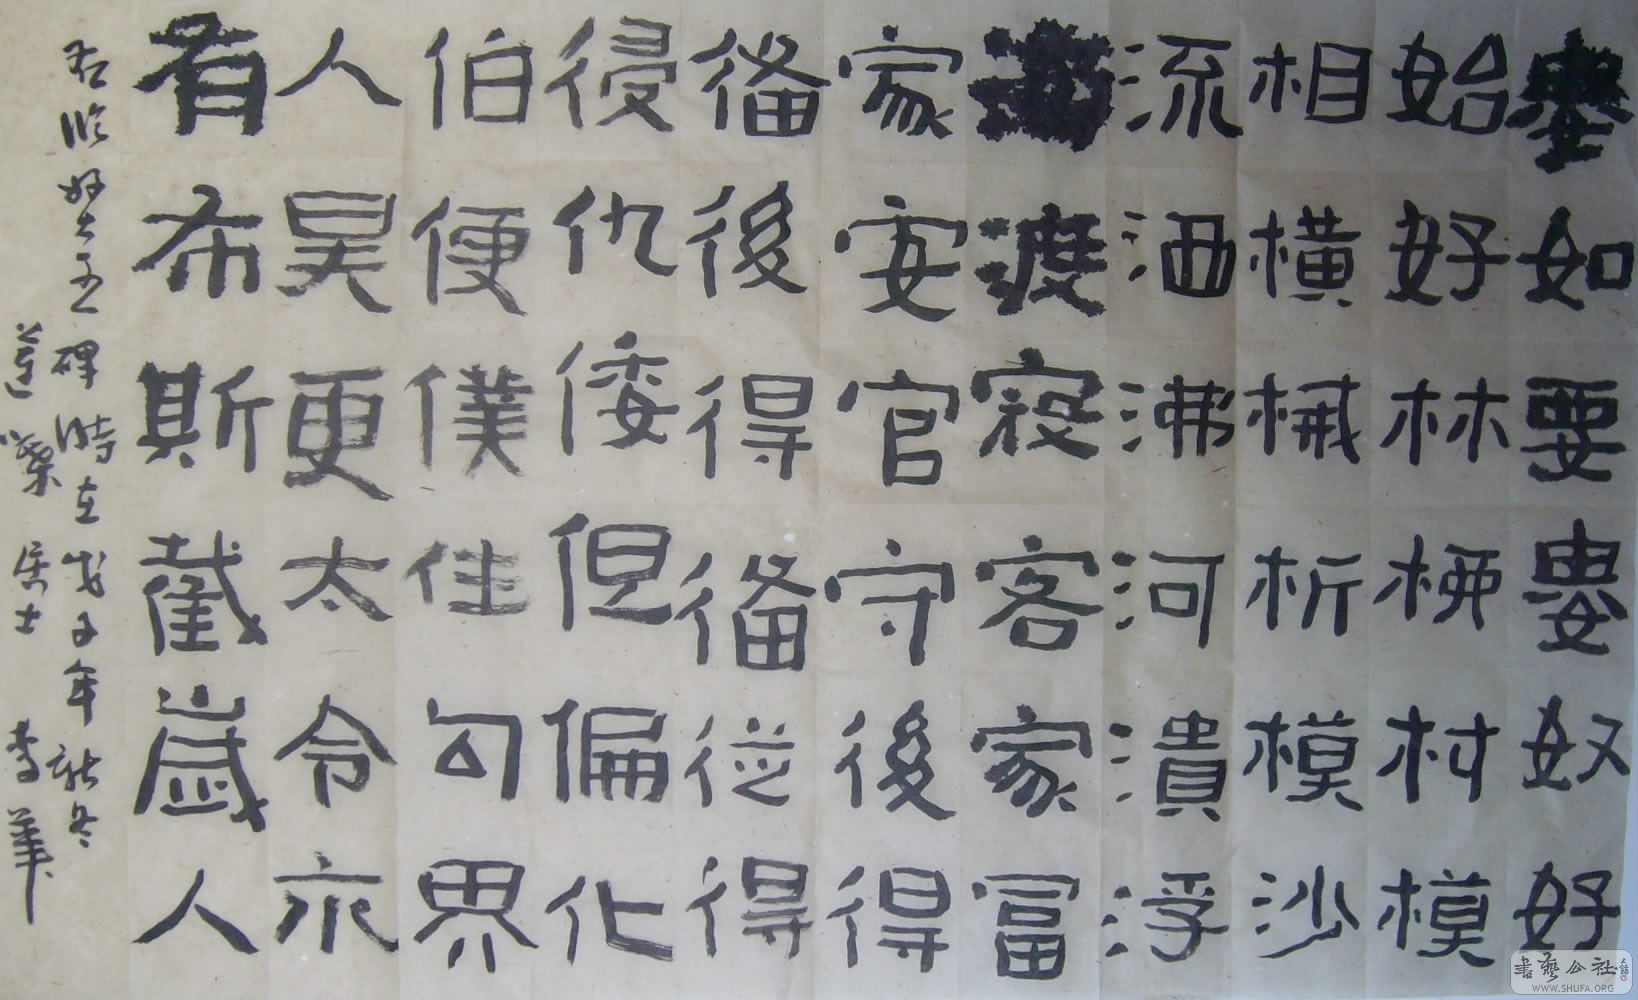 如要婁奴好
始好林柫村模
相橫械析模沙
流洒沸河潰浮
渡寇客家冨
家安官守後得
偹後得偹從得
侵仇倭但偏化
伯便僕住勾界
人昊更太令亦
有布斯截歲人
右临好大王碑時在戊子年初冬
蓮 居士 李華
書藝公社
WWW.SHUFA.ORG